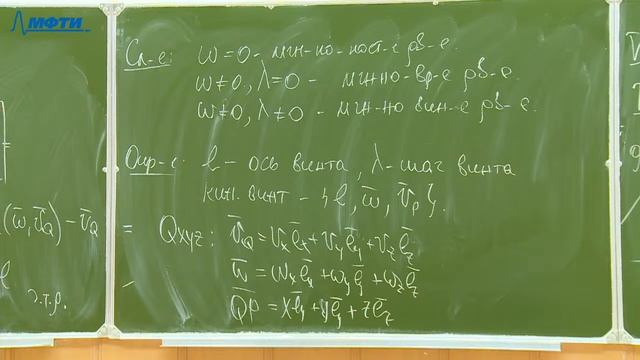 МФТИ
Сл-е: ω=0 - мгн-но-пост-е дв-е.
ω≠0, λ=0 - мгн-но вр-е дв-е.
ω≠0, λ≠0 - мгн-но вин-е дв-е.
Опр-е: l - ось винта, λ-шаг винта
кин. винт - {l, ω̅, v̅ₚ}.
(ω̅, v̅_Q) - v̅_Q = Qxyz: v̅_Q = vₓe̅ₓ + v_y e̅_y + v_z e̅_z
ω̅ = ωₓe̅ₓ + ω_y e̅_y + ω_z e̅_z
Q̅P̅ = xe̅ₓ + ye̅_y + ze̅_z